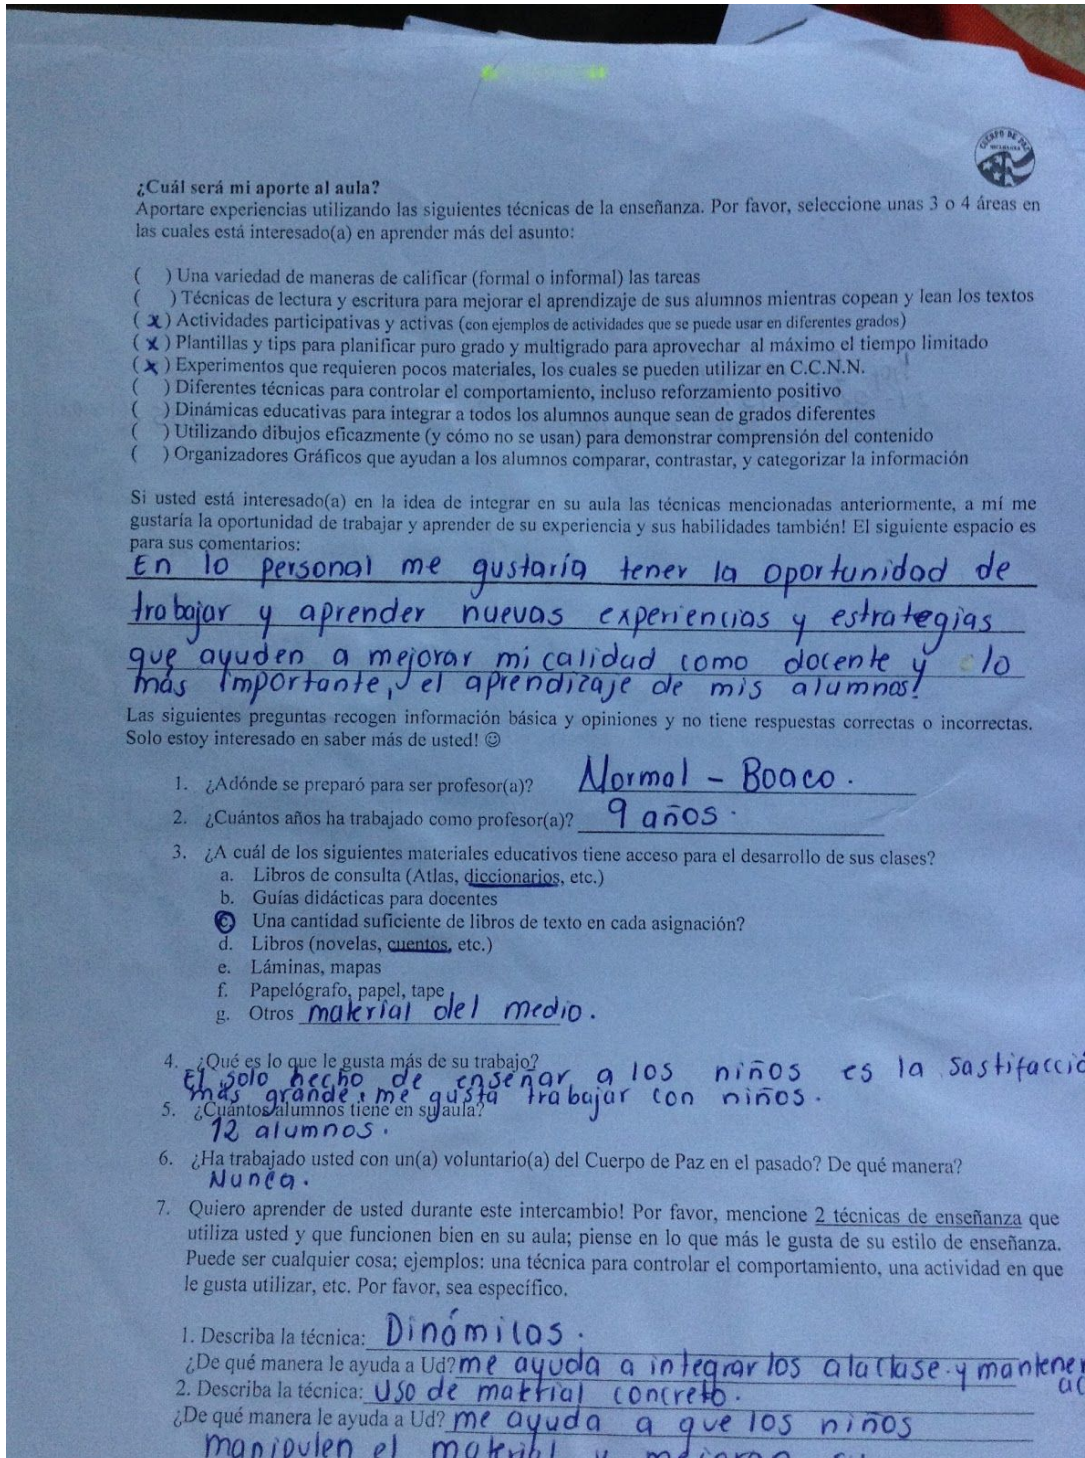 CUERPO DE PAZ
¿Cuál será mi aporte al aula?
Aportare experiencias utilizando las siguientes técnicas de la enseñanza. Por favor, seleccione unas 3 o 4 áreas en
las cuales está interesado(a) en aprender más del asunto:
( ) Una variedad de maneras de calificar (formal o informal) las tareas
( ) Técnicas de lectura y escritura para mejorar el aprendizaje de sus alumnos mientras copean y lean los textos
( x ) Actividades participativas y activas (con ejemplos de actividades que se puede usar en diferentes grados)
( x ) Plantillas y tips para planificar puro grado y multigrado para aprovechar al máximo el tiempo limitado
( x ) Experimentos que requieren pocos materiales, los cuales se pueden utilizar en C.C.N.N.
( ) Diferentes técnicas para controlar el comportamiento, incluso reforzamiento positivo
( ) Dinámicas educativas para integrar a todos los alumnos aunque sean de grados diferentes
( ) Utilizando dibujos eficazmente (y cómo no se usan) para demonstrar comprensión del contenido
( ) Organizadores Gráficos que ayudan a los alumnos comparar, contrastar, y categorizar la información
Si usted está interesado(a) en la idea de integrar en su aula las técnicas mencionadas anteriormente, a mí me
gustaría la oportunidad de trabajar y aprender de su experiencia y sus habilidades también! El siguiente espacio es
para sus comentarios:
En lo personal me gustaría tener la oportunidad de
trabajar y aprender nuevas experiencias y estrategias
que ayuden a mejorar mi calidad como docente y lo
más importante, el aprendizaje de mis alumnos!
Las siguientes preguntas recogen información básica y opiniones y no tiene respuestas correctas o incorrectas.
Solo estoy interesado en saber más de usted! ☺
1. ¿Adónde se preparó para ser profesor(a)? Normal - Boaco.
2. ¿Cuántos años ha trabajado como profesor(a)? 9 años.
3. ¿A cuál de los siguientes materiales educativos tiene acceso para el desarrollo de sus clases?
a. Libros de consulta (Atlas, diccionarios, etc.)
b. Guías didácticas para docentes
c. Una cantidad suficiente de libros de texto en cada asignación?
d. Libros (novelas, cuentos, etc.)
e. Láminas, mapas
f. Papelógrafo, papel, tape
g. Otros material del medio.
4. ¿Qué es lo que le gusta más de su trabajo?
El solo hecho de enseñar a los niños es la sastifacció
más grande, me gusta trabajar con niños.
5. ¿Cuántos alumnos tiene en su aula?
12 alumnos.
6. ¿Ha trabajado usted con un(a) voluntario(a) del Cuerpo de Paz en el pasado? De qué manera?
Nunca.
7. Quiero aprender de usted durante este intercambio! Por favor, mencione 2 técnicas de enseñanza que
utiliza usted y que funcionen bien en su aula; piense en lo que más le gusta de su estilo de enseñanza.
Puede ser cualquier cosa; ejemplos: una técnica para controlar el comportamiento, una actividad en que
le gusta utilizar, etc. Por favor, sea específico.
1. Describa la técnica: Dinámicas.
¿De qué manera le ayuda a Ud? me ayuda a integrar los a la clase y mantener
2. Describa la técnica: uso de material concreto.
¿De qué manera le ayuda a Ud? me ayuda a que los niños
manipulen el material y